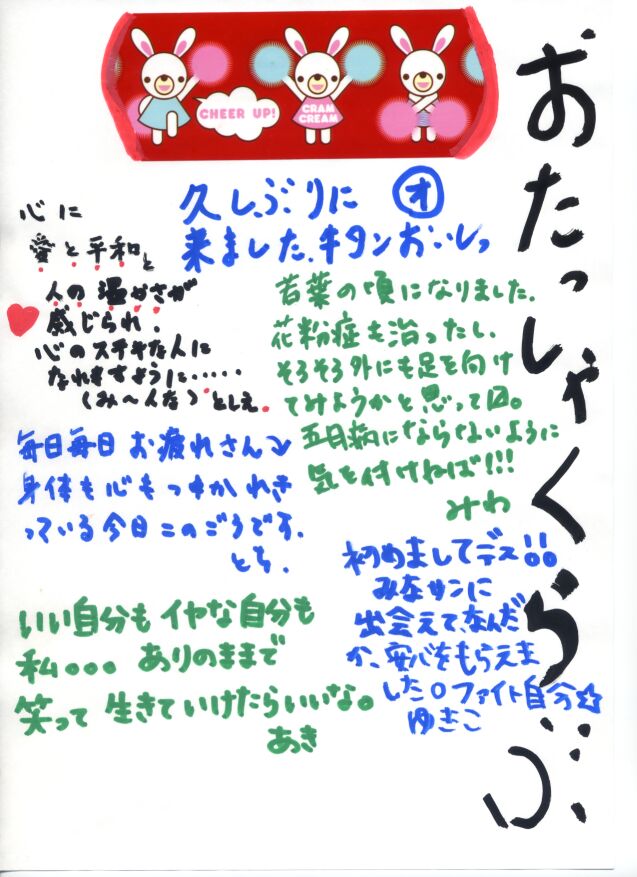 おたっしゃくらぶ
CHEER UP!
CRAM
CREAM
久しぶりに オ
来ました。牛タンおいしっ
心に
愛と平和と
人の温かさが
感じられ、
心のステキな人に
なれますように……
(み〜んな) としえ
若葉の頃になりました。
花粉症も治ったし、
そろそろ外にも足を向け
てみようかと思って〼。
五月病にならないように
気を付けねば!!!
みわ
毎日毎日お疲れさん
身体も心もつかれき
っている今日このごろです。
とち.
初めましてデス!!
みなサンに
出会えて、なんだ
か、安心をもらえま
した。ファイト自分☆
ゆきこ
いい自分もイヤな自分も
私。。。ありのままで
笑って生きていけたらいいな。
あき